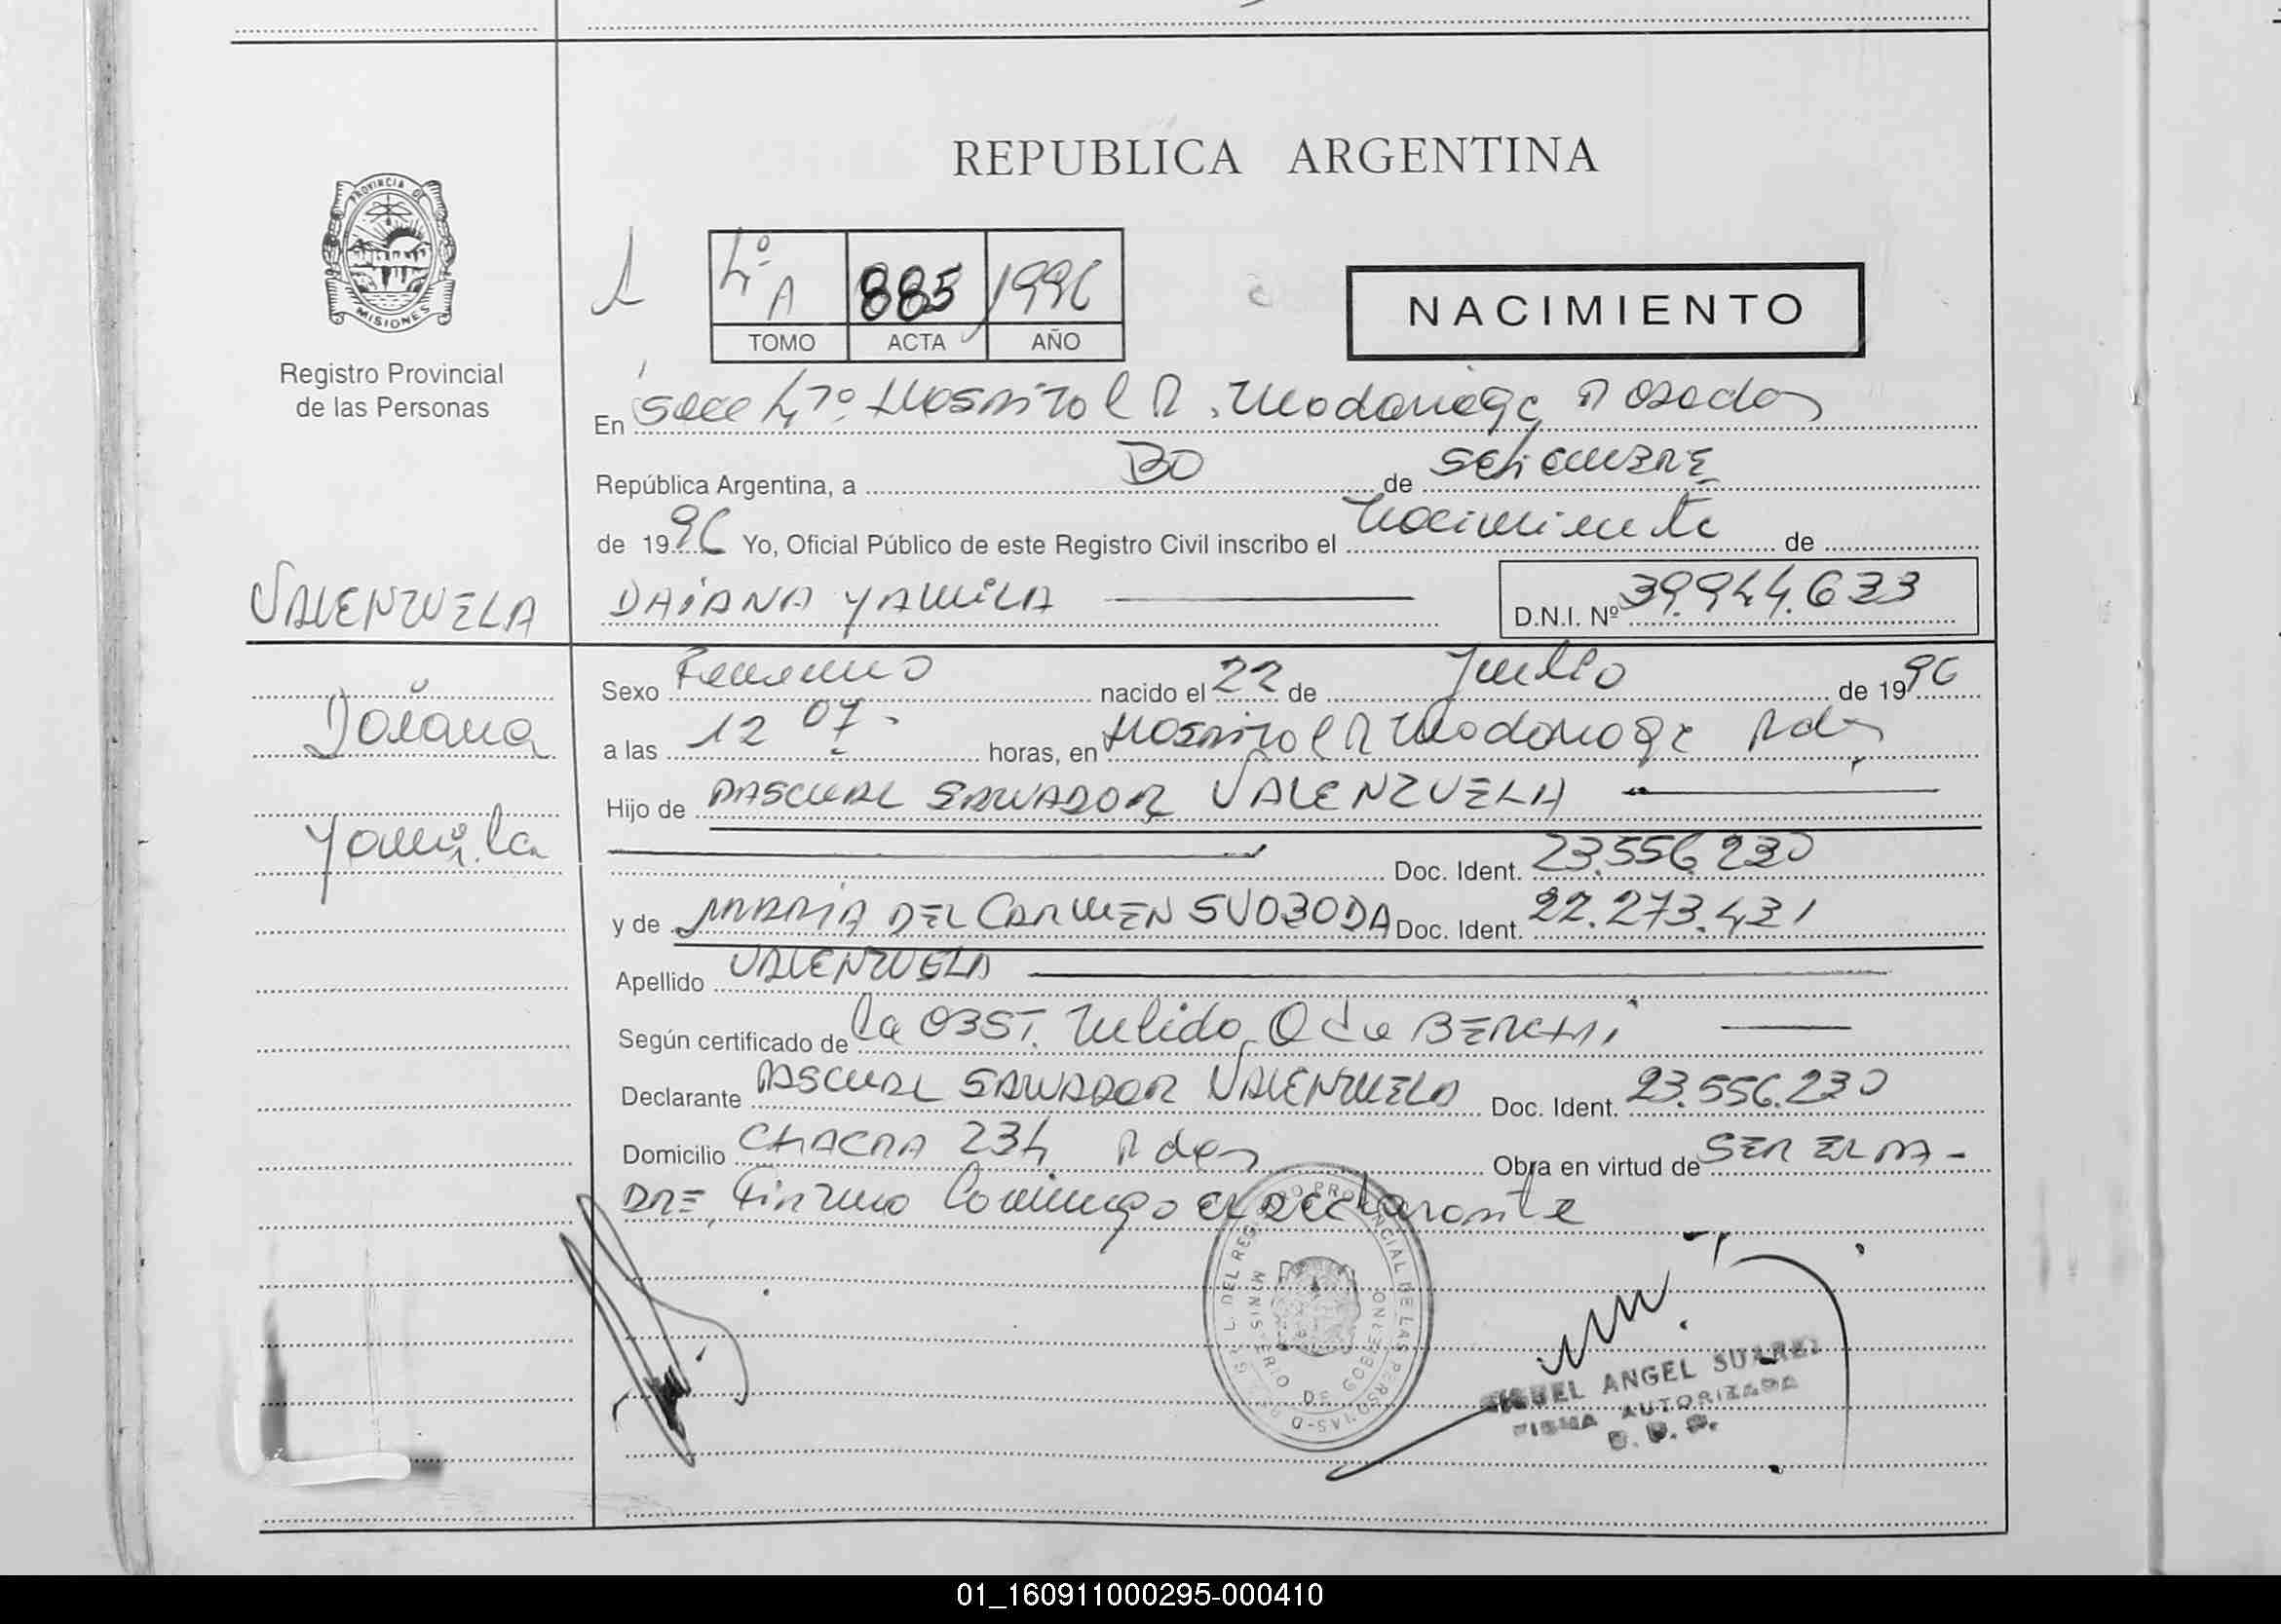 REPUBLICA ARGENTINA
PROVINCIA DE MISIONES
Registro Provincial
de las Personas
1 4º A 885 1996
TOMO ACTA AÑO
NACIMIENTO
En Secc 4ta. Hospital R. Madariaga Posadas
República Argentina, a 30 de SETIEMBRE
de 1996 Yo, Oficial Público de este Registro Civil inscribo el Nacimiento de
VALENZUELA
DAIANA YAMILA D.N.I. Nº 39.944.633
Daiana
Yamila
Sexo Femenino nacido el 22 de Julio de 1996
a las 12 07. horas, en Hospital R Madariaga Pdas
Hijo de PASCUAL SALVADOR VALENZUELA
Doc. Ident. 23.556.230
y de MARIA DEL CARMEN SVOBODA Doc. Ident. 22.273.431
Apellido VALENZUELA
Según certificado de la OBST. Nélida O de BERCHI
Declarante PASCUAL SALVADOR VALENZUELA Doc. Ident. 23.556.230
Domicilio CHACRA 234 Pdas Obra en virtud de SER EL PA-
DRE, Firma Conmigo el declarante
DEL REGISTRO PROVINCIAL DE LAS PERSONAS
MINISTERIO DE GOBIERNO
MIGUEL ANGEL SUAREZ
FIRMA AUTORIZADA
01_160911000295-000410